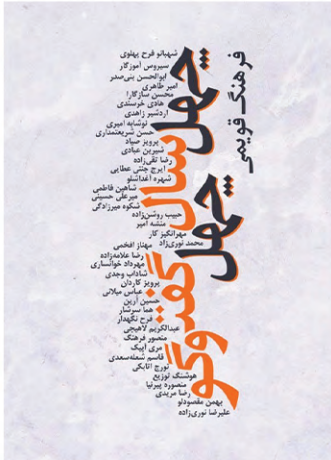 چهل سال چهل گفت‌وگو
فرهنگ قویمی
شهبانو فرح پهلوی
سیروس آموزگار
ابوالحسن بنی‌صدر
امیر طاهری
محسن سازگارا
هادی خرسندی
اردشیر زاهدی
نوشابه امیری
حسن شریعتمداری
پرویز صیاد
شیرین عبادی
رضا تقی‌زاده
ایرج جنتی عطایی
شهره آغداشلو
شاهین فاطمی
میرعلی حسینی
شکوه میرزادگی
حبیب روشن‌زاده
منشه امیر
مهرانگیز کار
محمد نوری‌زاد
مهناز افخمی
رضا علامه‌زاده
مهرداد خوانساری
شاداب وجدی
پرویز کاردان
عباس میلانی
حسین آرین
هما سرشار
فرح نگهدار
عبدالکریم لاهیجی
منصور فرهنگ
مری آپیک
قاسم شعله‌سعدی
تورج اتابکی
هوشنگ لوزیع
منصوره پیرنیا
رضا مریدی
بهمن مقصودلو
علیرضا نوری‌زاده